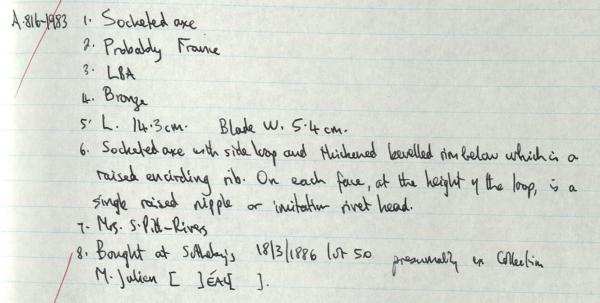 A.816-1983 1. Socketed axe
2. Probably France
3. LBA
4. Bronze
5. L. 14.3cm. Blade W. 5.4cm.
6. Socketed axe with side loop and thickened bevelled rim below which is a
raised encircling rib. On each face, at the height of the loop, is a
single raised nipple or imitation rivet head.
7. Mrs. S. Pitt-Rivers
8. Bought at Sotheby's 18/3/1886 lot 50 presumably ex Collection
M. Julien [ ] [ ].